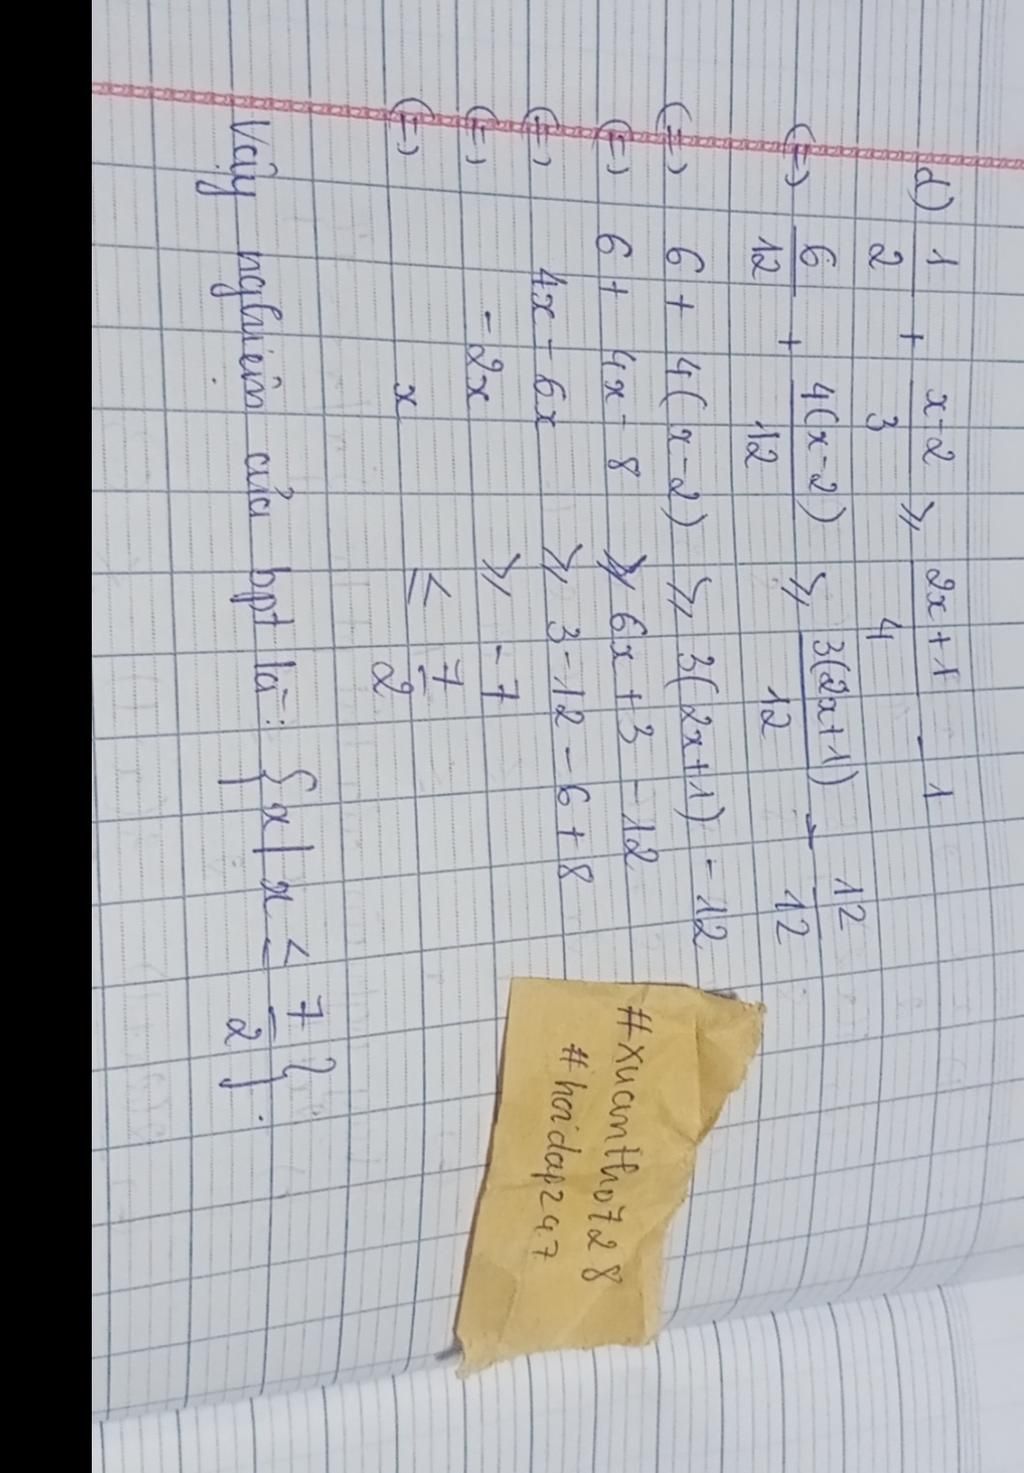 d) 1/2 + x-2/3 ⩾ 2x+1/4 - 1
(=) 6/12 + 4(x-2)/12 ⩾ 3(2x+1)/12 - 12/12
(=) 6 + 4(x-2) ⩾ 3(2x+1) - 12
(=) 6 + 4x - 8 ⩾ 6x + 3 - 12
(=) 4x - 6x ⩾ 3 - 12 - 6 + 8
(=) - 2x ⩾ - 7
(=) x ≤ 7/2
Vậy nghiệm của bpt là: {x | x ≤ 7/2}.
#xuantho728
#hoidap247